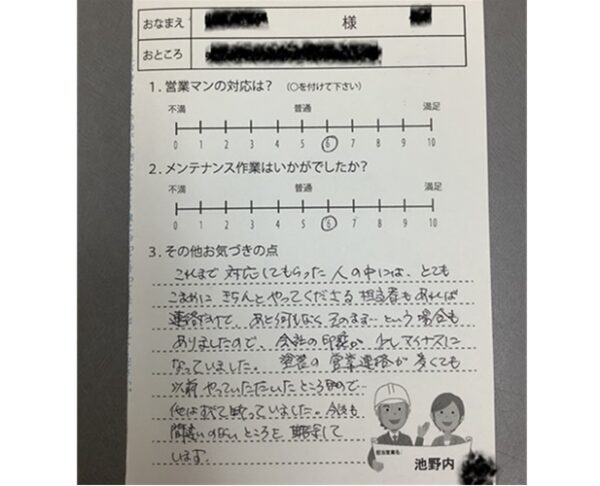 おなまえ 様
おところ
1. 営業マンの対応は? (○を付けて下さい)
不満 普通 満足
0 1 2 3 4 5 6 7 8 9 10
2. メンテナンス作業はいかがでしたか?
不満 普通 満足
0 1 2 3 4 5 6 7 8 9 10
3. その他お気づきの点
これまで対応してもらった人の中には、とても
こまめにきちんとやってくださる担当者もあれば
連絡だけで、あと何もなくそのまま…という場合も
ありましたので、会社の印象が少しマイナスに
なっていました。 塗装の営業連絡が多くても
以前やっていただいたところなので…
他はすべて断っていました。今後も
間違いのないところを期待して
います。
担当営業名:
池野内